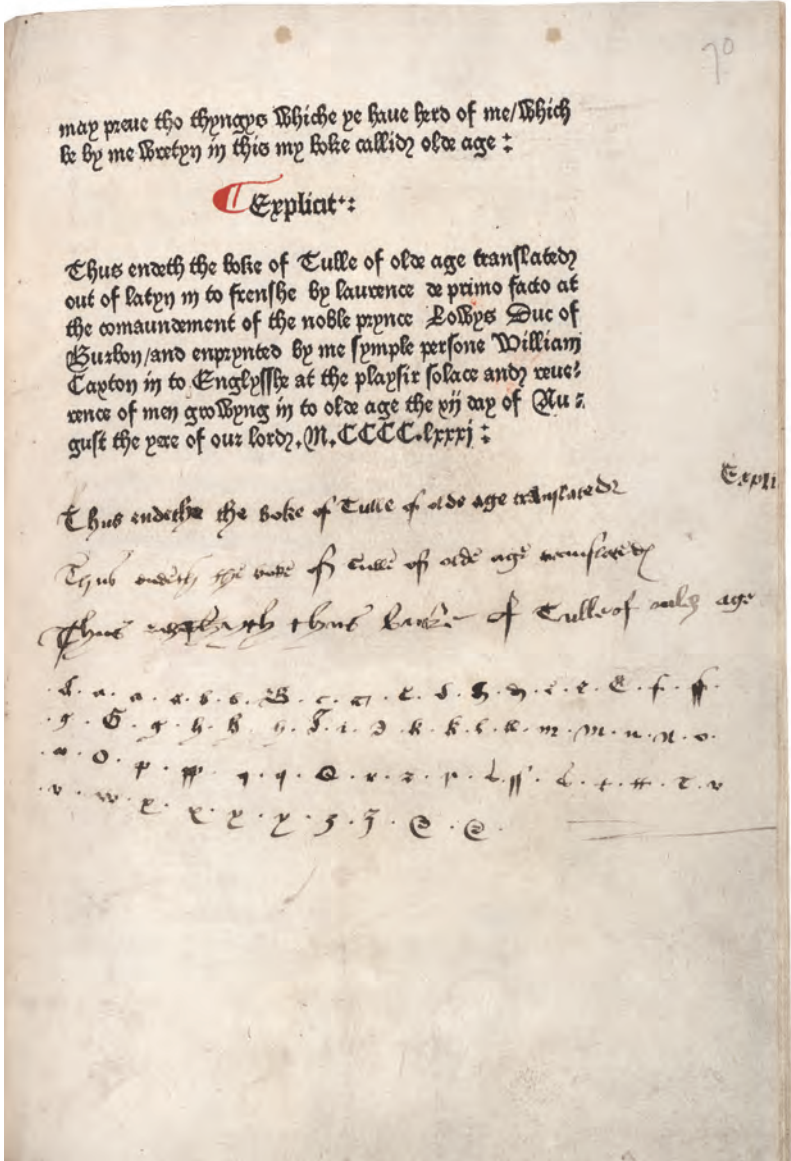 70
may preue tho thyngys Whiche ye haue herd of me/Which
be by me Wretyn in this my boke callid olde age :
¶ Explicit :
Thus endeth the boke of Tulle of olde age translated
out of latyn in to frenshe by laurence de primo facto at
the comaundement of the noble prynce Lowys Duc of
Burbon/and enprynted by me symple persone William
Caxton in to Englysshe at the playsir solace and reue⸗
rence of men growyng in to olde age the xij day of Au⸗
gust the yere of our lord. M.CCCC.lxxxj :
Expli
Thus endethe the boke of Tulle of olde age translated
Thus endeth the boke of Tulle of olde age translated
Thus thus of Tulle of age
a . a . a . b . b . B . c . c . C . d . d . e . e . E . f . ff .
g . G . g . h . h . h . I . i . k . k . l . m . M . n . n . o .
O . p . pp . q . q . Q . r . r . s . ss . s . t . tt . T . v
v . w . x . x . x . x . 3 . 3 .